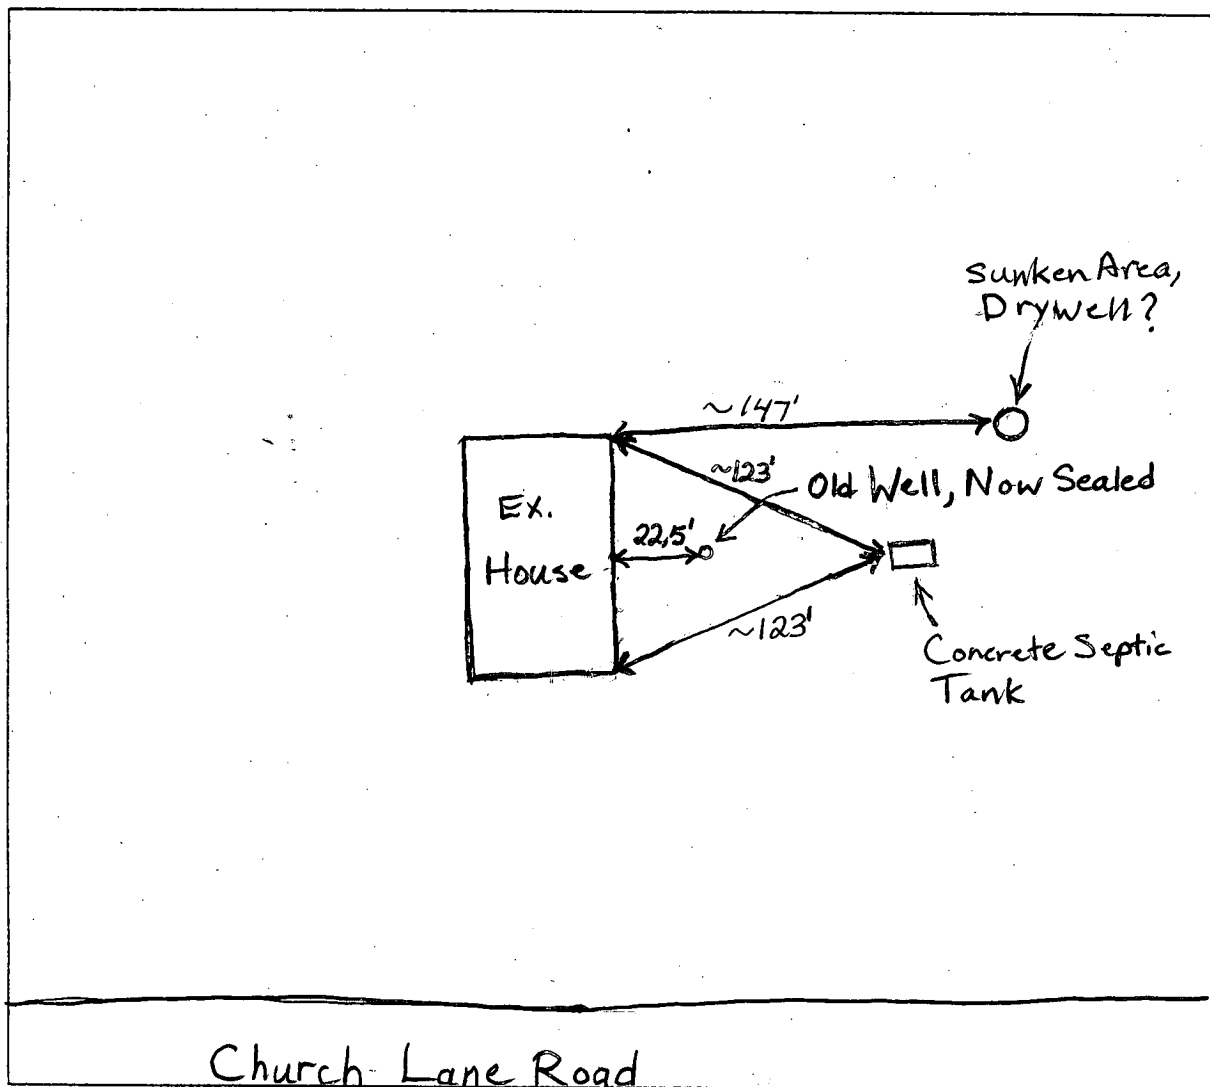 Sunken Area,
Drywell?
~147'
~123'
Old Well, Now Sealed
Ex.
House
22,5'
~123'
Concrete Septic
Tank
Church Lane Road